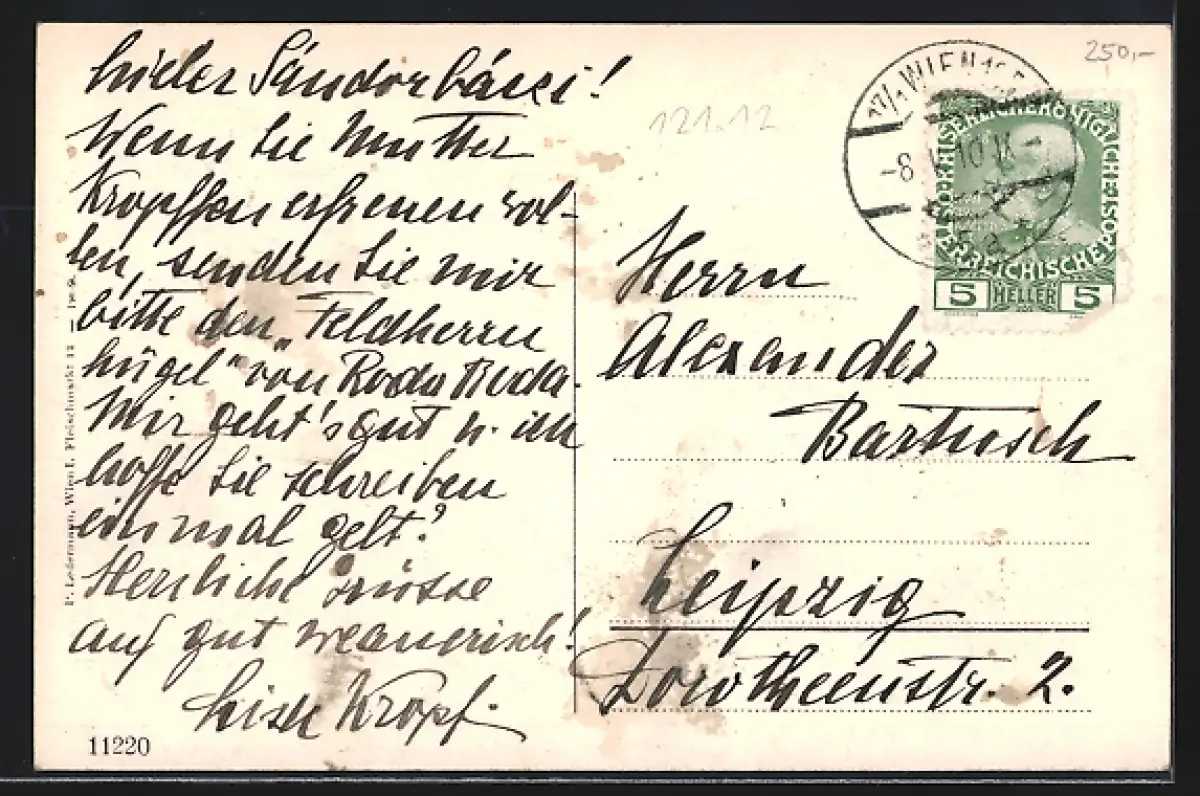 Lieber Sándorbácsi!
Wenn Sie Mutter
Kropffen erfreuen wol-
len, senden Sie mir
bitte den „Feldherrn
hügel" von Roda Roda.
Mir geht's gut u. ich
hoffe Sie schreiben
einmal gelt?
Herzliche Grüsse
auf gut weanerisch!
Kropf.
11220
P. Ledermann, Wien I, Fleischmarkt 12
250,-
121.12
17/1 WIEN
-8. 10
KAISERLICHE KÖNIGLICHE ÖSTERREICHISCHE POST
5 HELLER 5
Herrn
Alexander
Bartusch
Leipzig
Dorotheenstr. 2.